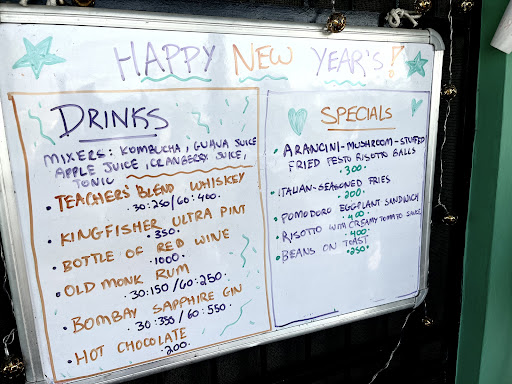 HAPPY NEW YEAR'S!
DRINKS
MIXERS: KOMBUCHA, GUAVA JUICE
APPLE JUICE, CRANBERRY JUICE,
TONIC
• TEACHERS' BLEND WHISKEY
• 30:250/60:400.
• KINGFISHER ULTRA PINT
• 350.
• BOTTLE OF RED WINE
• 1000.
• OLD MONK RUM
• 30:150/60:250.
• BOMBAY SAPPHIRE GIN
• 30:350/60:550
• HOT CHOCOLATE
• 200.
SPECIALS
• ARANCINI-MUSHROOM-STUFFED
FRIED PESTO RISOTTO BALLS
• 300 •
• ITALIAN-SEASONED FRIES
• 200 •
• POMODORO EGGPLANT SANDWICH
• 400 •
• RISOTTO WITH CREAMY TOMATO SAUCE
• 400 •
• BEANS ON TOAST
• 250 •